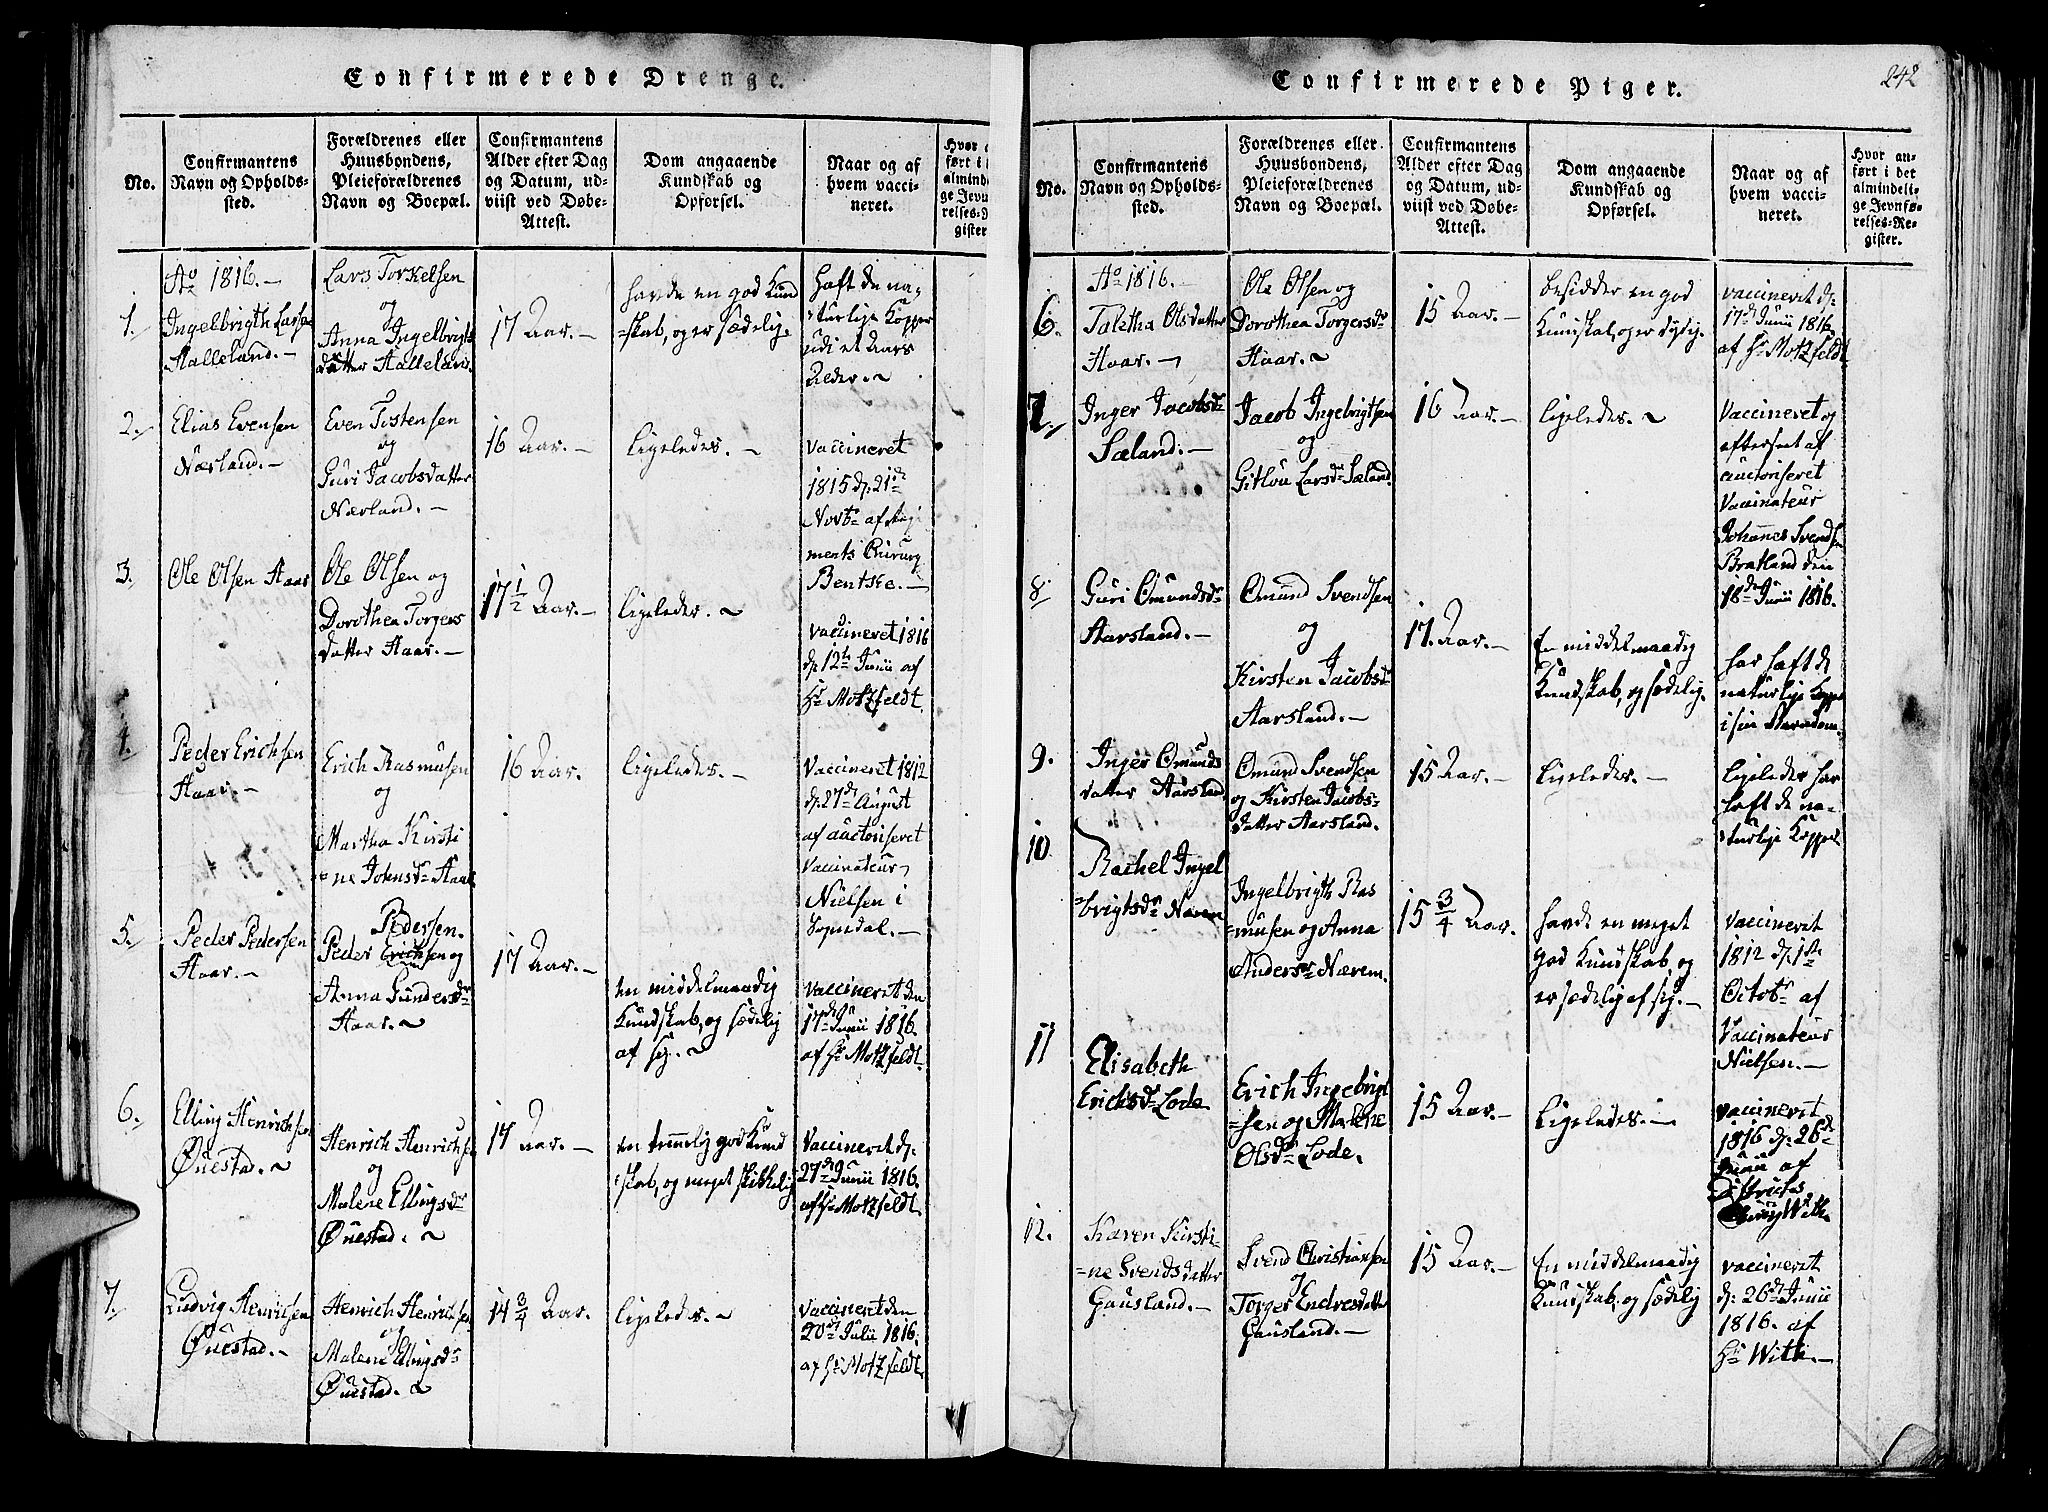 Confirmerede Drenge.
No.
Confirmantens
Navn og Opholds-
sted.
Forældrenes eller
Huusbondens,
Pleieforældrenes
Navn og Boepæl.
Confirmantens
Alder efter Dag
og Datum, ud-
viist ved Døbe-
Attest.
Dom angaaende
Kundskab og
Opførsel.
Naar og af
hvem vacci-
neret.
1.
Ao 1816.-
Ingelbrigth Larsen
Halleland.-
Lars Torkelsen
og
Anna Ingelbrigts
datter Halleland.
17 Aar.-
havde en god Kund
=skab, og er sædelig.
haft de na-
turlige Kopper
udi et Aars
Alder.
2.
Elias Evensen
Nærland.-
Even Tostensen
og
Guri Jacobsdatter
Nærland.-
16 Aar.-
ligeledes.-
vaccineret
1815 d: 21de
Novbr af Regi
ments Chirurg
Bentske.-
3.
Ole Olsen Haar
Ole Olsen og
Dorothea Torgers
datter Haar.-
17 1/2 Aar.-
ligeledes.
vaccineret 1816
d: 12te Junii af
Hr Motzfeldt.
4.
Peder Erichsen
Haar.-
Erich Rasmusen
og
Martha Kirsti
=ne Johnsdr Haar
16 Aar.
ligeledes.-
Vaccineret 1812
d: 27de August
af auctoriseret
vaccinateur
Nielsen i
Sogndal.-
5.
Peder Pedersen
Haar.-
Pedersen.
Peder Erichsen og
Anna Gundersdr
Haar.
17 Aar.-
en middelmaadig
Kundskab, og sædelig
af sig.
vaccineret den
17de Junii 1816.
af Hr Motzfeldt.
6.
Elling Henrichsen
Øuestad.
Henrich Henrichsen
og
Malene Ellingsdr
Øuestad.
17 Aar.-
en temmelig god Kund
skab, og meget skikkelig
Vaccineret d:
27de Junii 1816.
af Hr Motzfeldt.
7.
Ludvig Henrichsen
Øuestad.-
Henrich Henrichsen
og
Malene Ellingsdr
Øuestad.
14 3/4 Aar.
ligeledes.
vaccineret den
20de Julii 1816.
af Hr Motzfeldt.
Confirmerede Piger.
242
No.
Confirmantens
Navn og Opholds-
sted.
Forældrenes eller
Huusbondens,
Pleieforældrenes
Navn og Boepæl.
Confirmantens
Alder efter Dag
og Datum, ud-
viist ved Døbe-
Attest.
Dom angaaende
Kundskab og
Opførsel.
Naar og af
hvem vacci-
neret.
Hvor an-
ført i det
almindeli-
ge Jevnfø-
relses-Re-
gister.
6.
Ao 1816.
Taletha Olsdatter
Haar.
Ole Olsen og
Dorothea Torgersdr
Haar.
15 Aar.-
besidder en god
Kundskab, og er dydig.
vaccineret d:
17de Junii 1816.
af Hr Motzfeldt
7.
Inger Jacobsdr
Sæland.-
Jacob Ingebrigtsen
og
Gitlou Larsdr Sæland.
16 Aar.-
ligeledes.
Vaccineret og
efterseet af
auctoriseret
Vaccinateur
Johannes Svendsen
Bratland den
18de Junii 1816.
8
Guri Omundsdr
Aarsland.-
Omund Svendsen
og
Kirsten Jacobsdr
Aarsland.-
17. Aar.-
En middelmaadig
Kundskab, og sædelig.
har haft de
naturlige Kopper
i sin Barndom.
9.
Inger Omunds
datter Aarsland
Omund Svendsen
og Kirsten Jacobs=
datter Aarsland.
15 Aar.-
Ligeledes.-
ligeledes har
haft de na-
turlige Kopper
10
Rachel Ingel
=brigtsdr Nærem
Ingelbrigth Ras
=musen og Anna
Andersdr Nærem.
15 3/4 Aar.
havde en meget
god Kundskab, og
er sædelig af sig.-
vaccineret
1812 d: 1ste
Octobr af
Vaccinateur
Nielsen.-
11
Elisabeth
Erichsdr Lode
Erich Ingebrigt
=sen og Malene
Olsdr Lode.
15 Aar.-
Ligeledes.-
vaccineret
1816 d: 26de
Junii af
Districts
With.
12.
Karen Kirsti-
=ne Svendsdatter
Gausland.-
Svend Christiansen
og
Torger Endresdatter
Gausland.-
15 Aar.-
En middelmaadig
Kundskab, og sædelig
vaccineret
d: 26de Junii
1816. af
Hr With.-